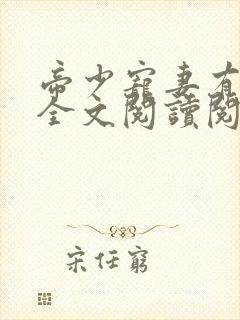 帝少寵妻有
全文閱讀閱
宋任窮